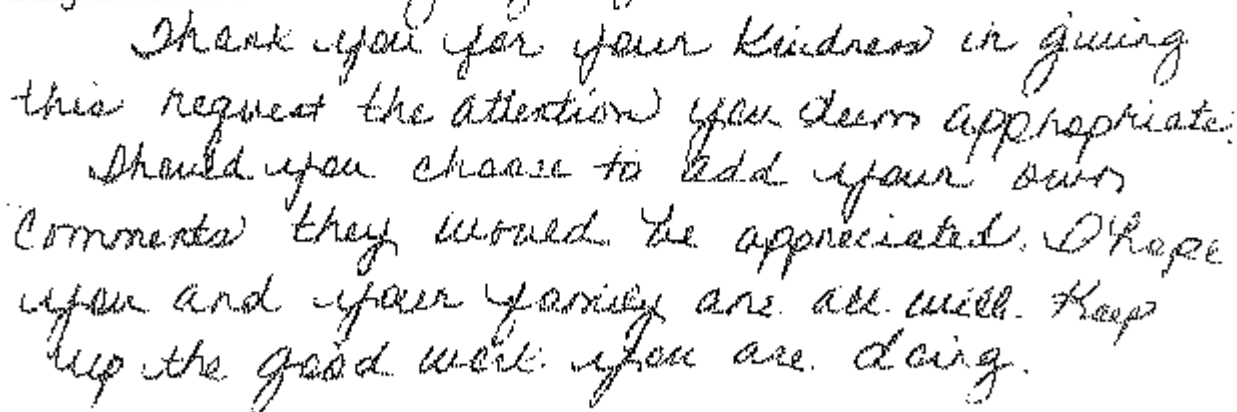 Thank you for your kindness in giving
this request the attention you deem appropriate.
Should you choose to add your own
comments they would be appreciated. I hope
you and your family are all well. Keep
up the good work you are doing.